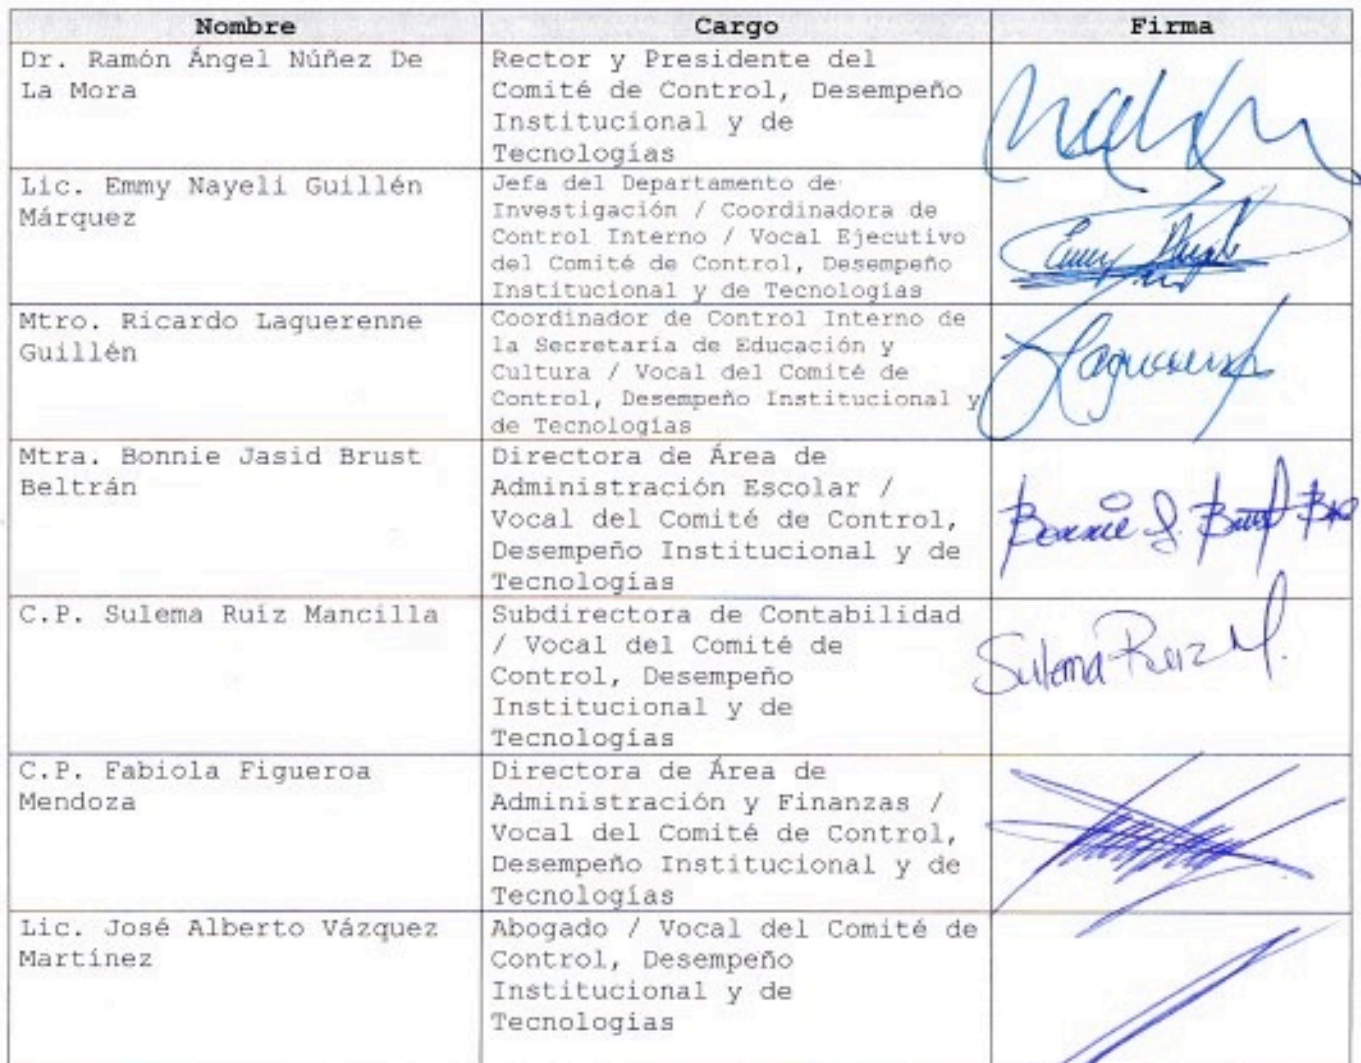 Nombre Cargo Firma
Dr. Ramón Ángel Núñez De
La Mora
Rector y Presidente del
Comité de Control, Desempeño
Institucional y de
Tecnologías
Lic. Emmy Nayeli Guillén
Márquez
Jefa del Departamento de
Investigación / Coordinadora de
Control Interno / Vocal Ejecutivo
del Comité de Control, Desempeño
Institucional y de Tecnologías
Emmy
Mtro. Ricardo Laguerenne
Guillén
Coordinador de Control Interno de
la Secretaría de Educación y
Cultura / Vocal del Comité de
Control, Desempeño Institucional y
de Tecnologías
Mtra. Bonnie Jasid Brust
Beltrán
Directora de Área de
Administración Escolar /
Vocal del Comité de Control,
Desempeño Institucional y de
Tecnologías
Bonnie J. Brust
C.P. Sulema Ruíz Mancilla
Subdirectora de Contabilidad
/ Vocal del Comité de
Control, Desempeño
Institucional y de
Tecnologías
Sulema Ruiz M.
C.P. Fabiola Figueroa
Mendoza
Directora de Área de
Administración y Finanzas /
Vocal del Comité de Control,
Desempeño Institucional y de
Tecnologías
Lic. José Alberto Vázquez
Martínez
Abogado / Vocal del Comité de
Control, Desempeño
Institucional y de
Tecnologías